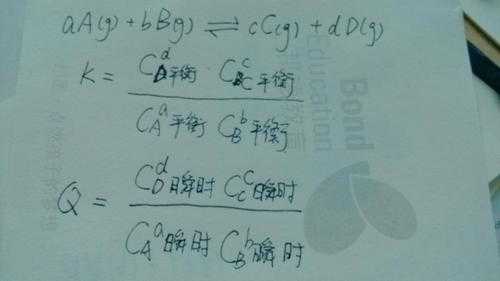 aA(g) + bB(g) ⇌ cC(g) + dD(g)
K = C_D^d平衡 · C_C^c平衡 / C_A^a平衡 C_B^b平衡
Q = C_D^d瞬时 C_C^c瞬时 / C_A^a瞬时 C_B^b瞬时
Bond
Education